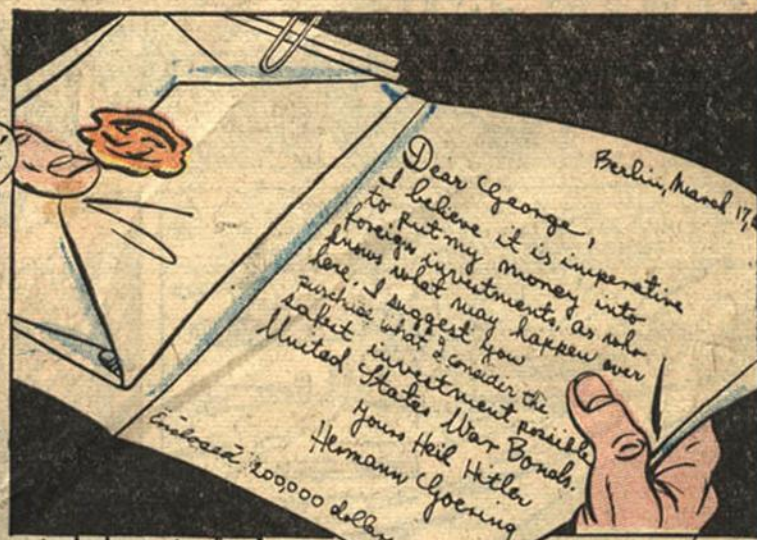 Berlin, March 17,
Dear George,
I believe it is imperative
to put my money into
foreign investments, as who
knows what may happen over
here. I suggest you
purchase what I consider the
safest investment possible
United States War Bonds.
Yours Heil Hitler
Hermann Goering
Enclosed 200,000 dollars